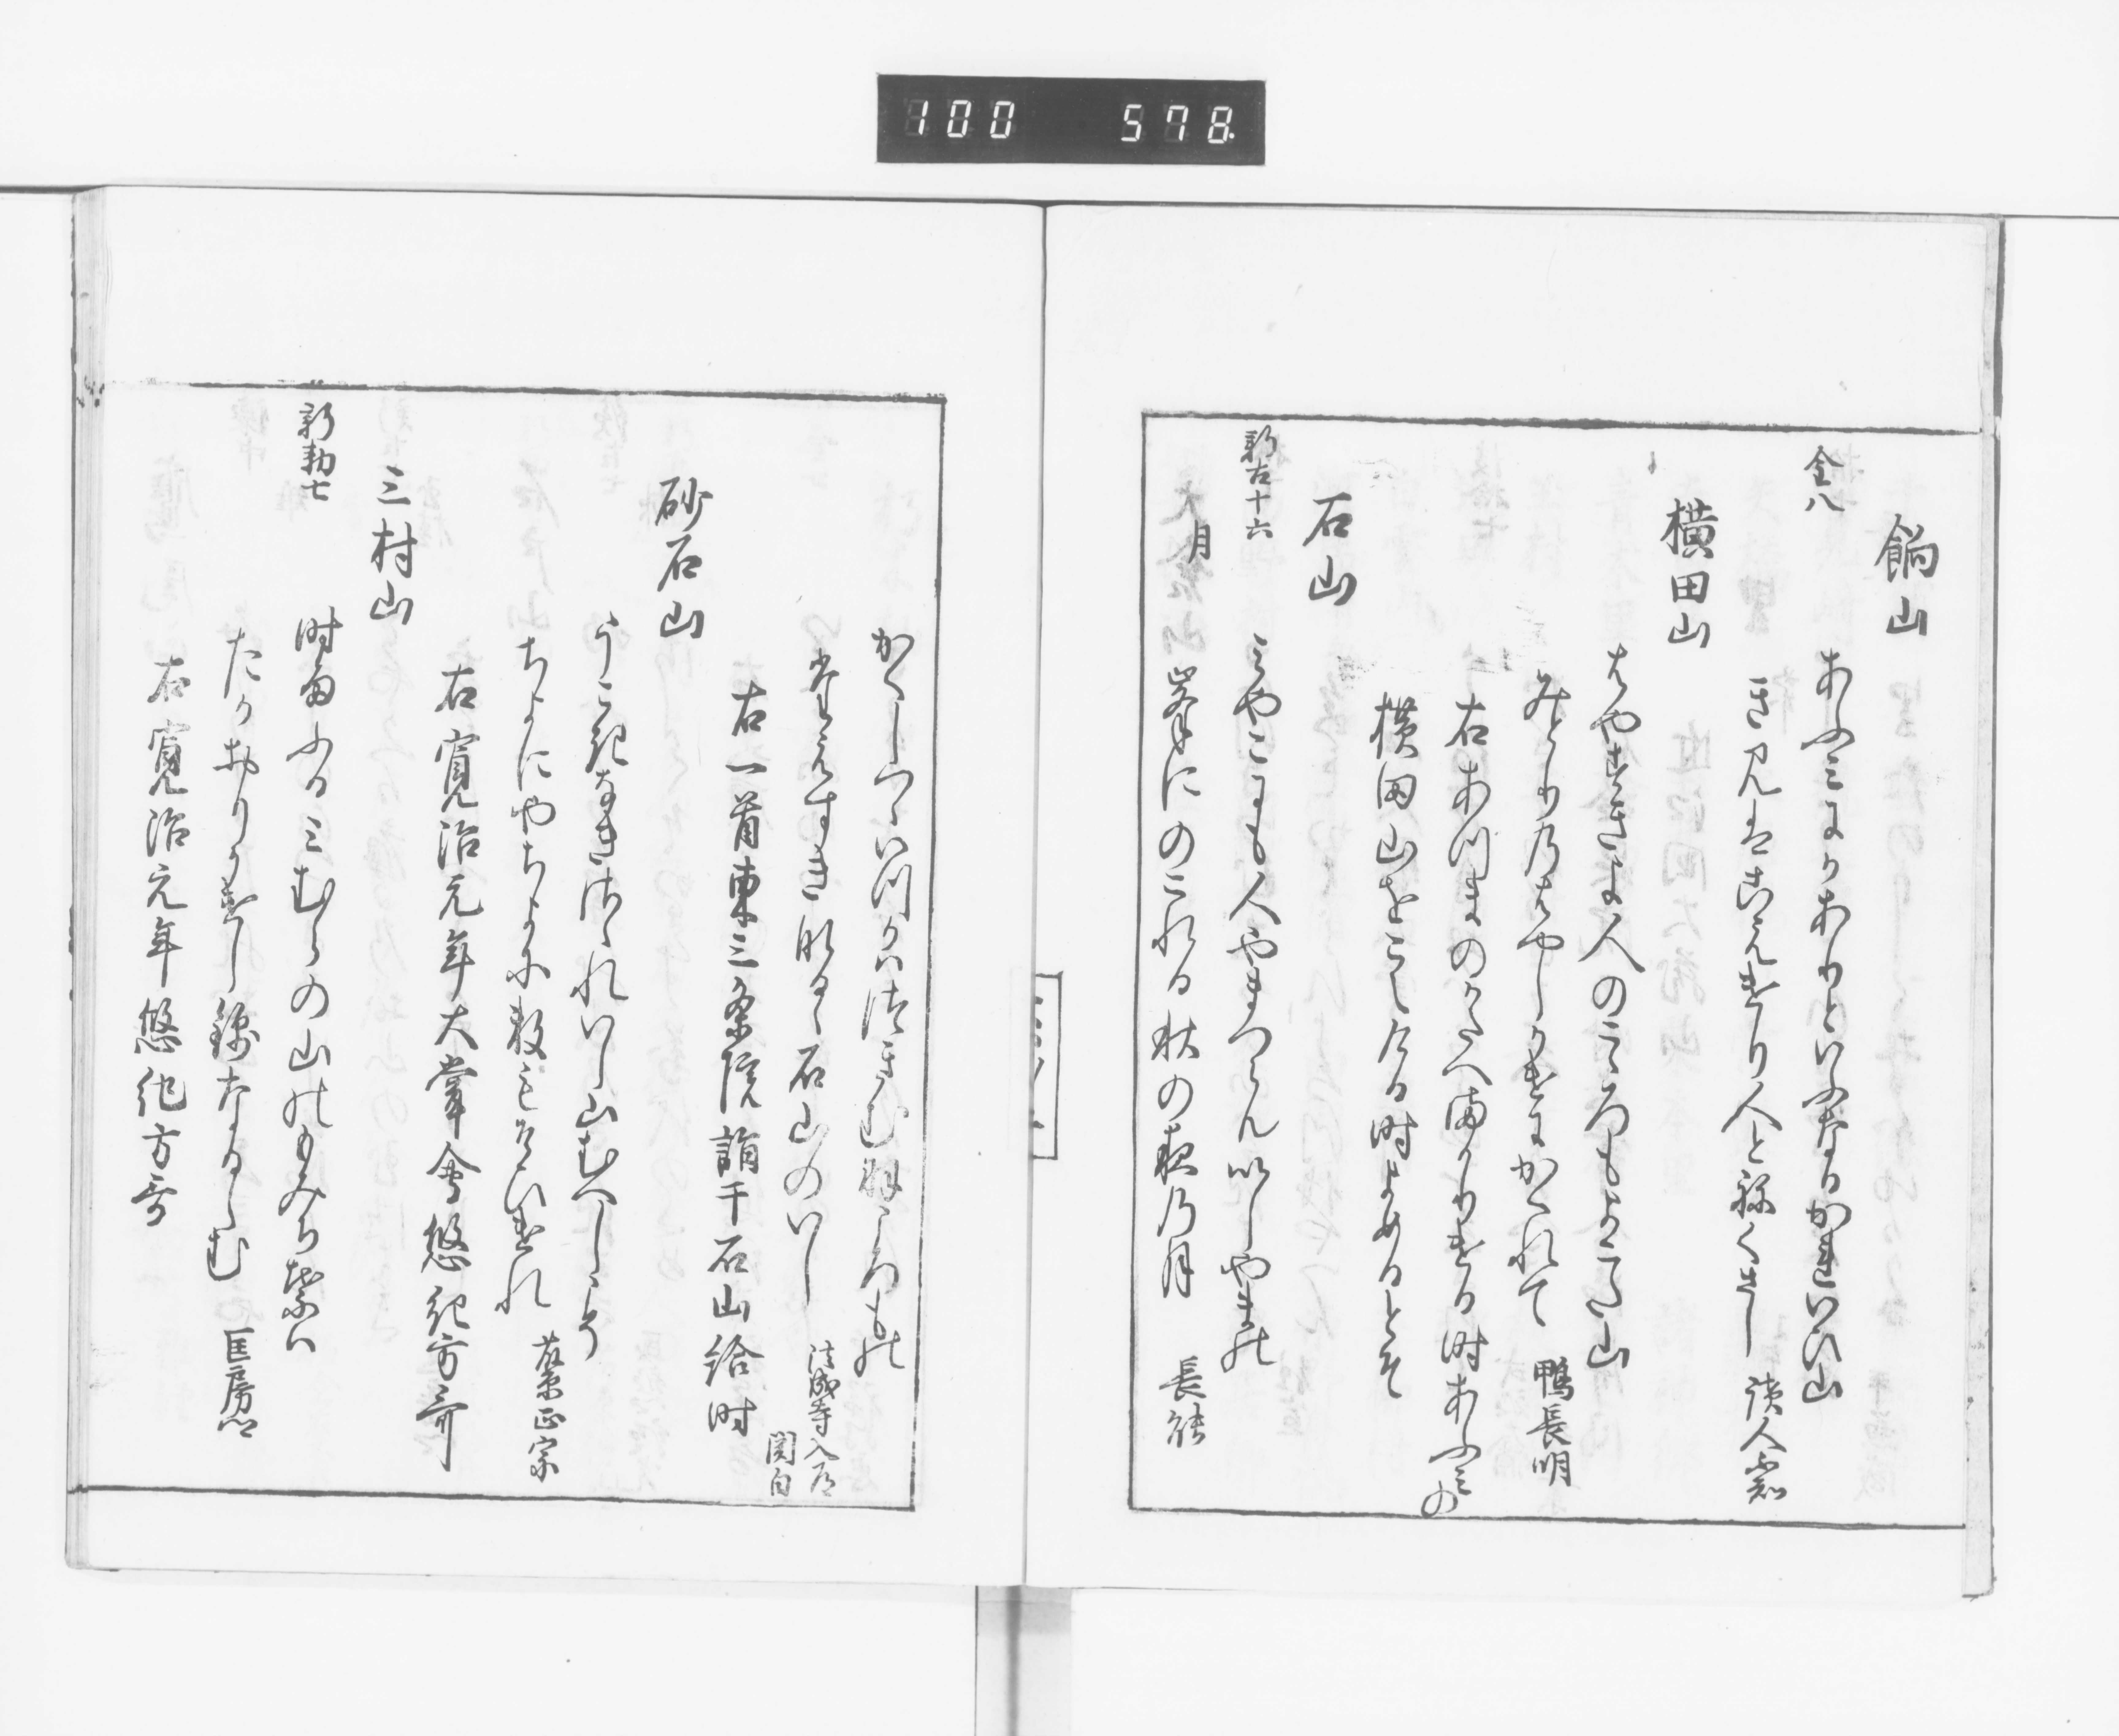 100 578.
餉山
金八
あふみにかありといふなるかれいひ山
きみはこえけり人とねくさし 読人不知
横田山
はやすきよ人のこゝろもよこた山
みとりのはやしかけにかくれて 鴨長明
右あつまのかたへまかりける時あふみの
横田山をこえける時よめるとそ
石山
新古十六
みやこにも人やまつらんいしやまの
月
峯にのこれる秋の夜の月 長能
かくしつゝいつかいつきむ
たえすき石山のいし 法成寺入道
関白
右一首東三条院詣于石山給時
砂石山
うこきなきさゝれいし山むへしこそ
ちよにやちよにかすもそひけれ 蔵正宗
右寛治元年大嘗会悠紀方哥
三村山
新勅七
時雨ふるみむらの山のもみちはゝ
たかおりかけし錦なるらむ 匡房
右寛治元年悠紀方哥